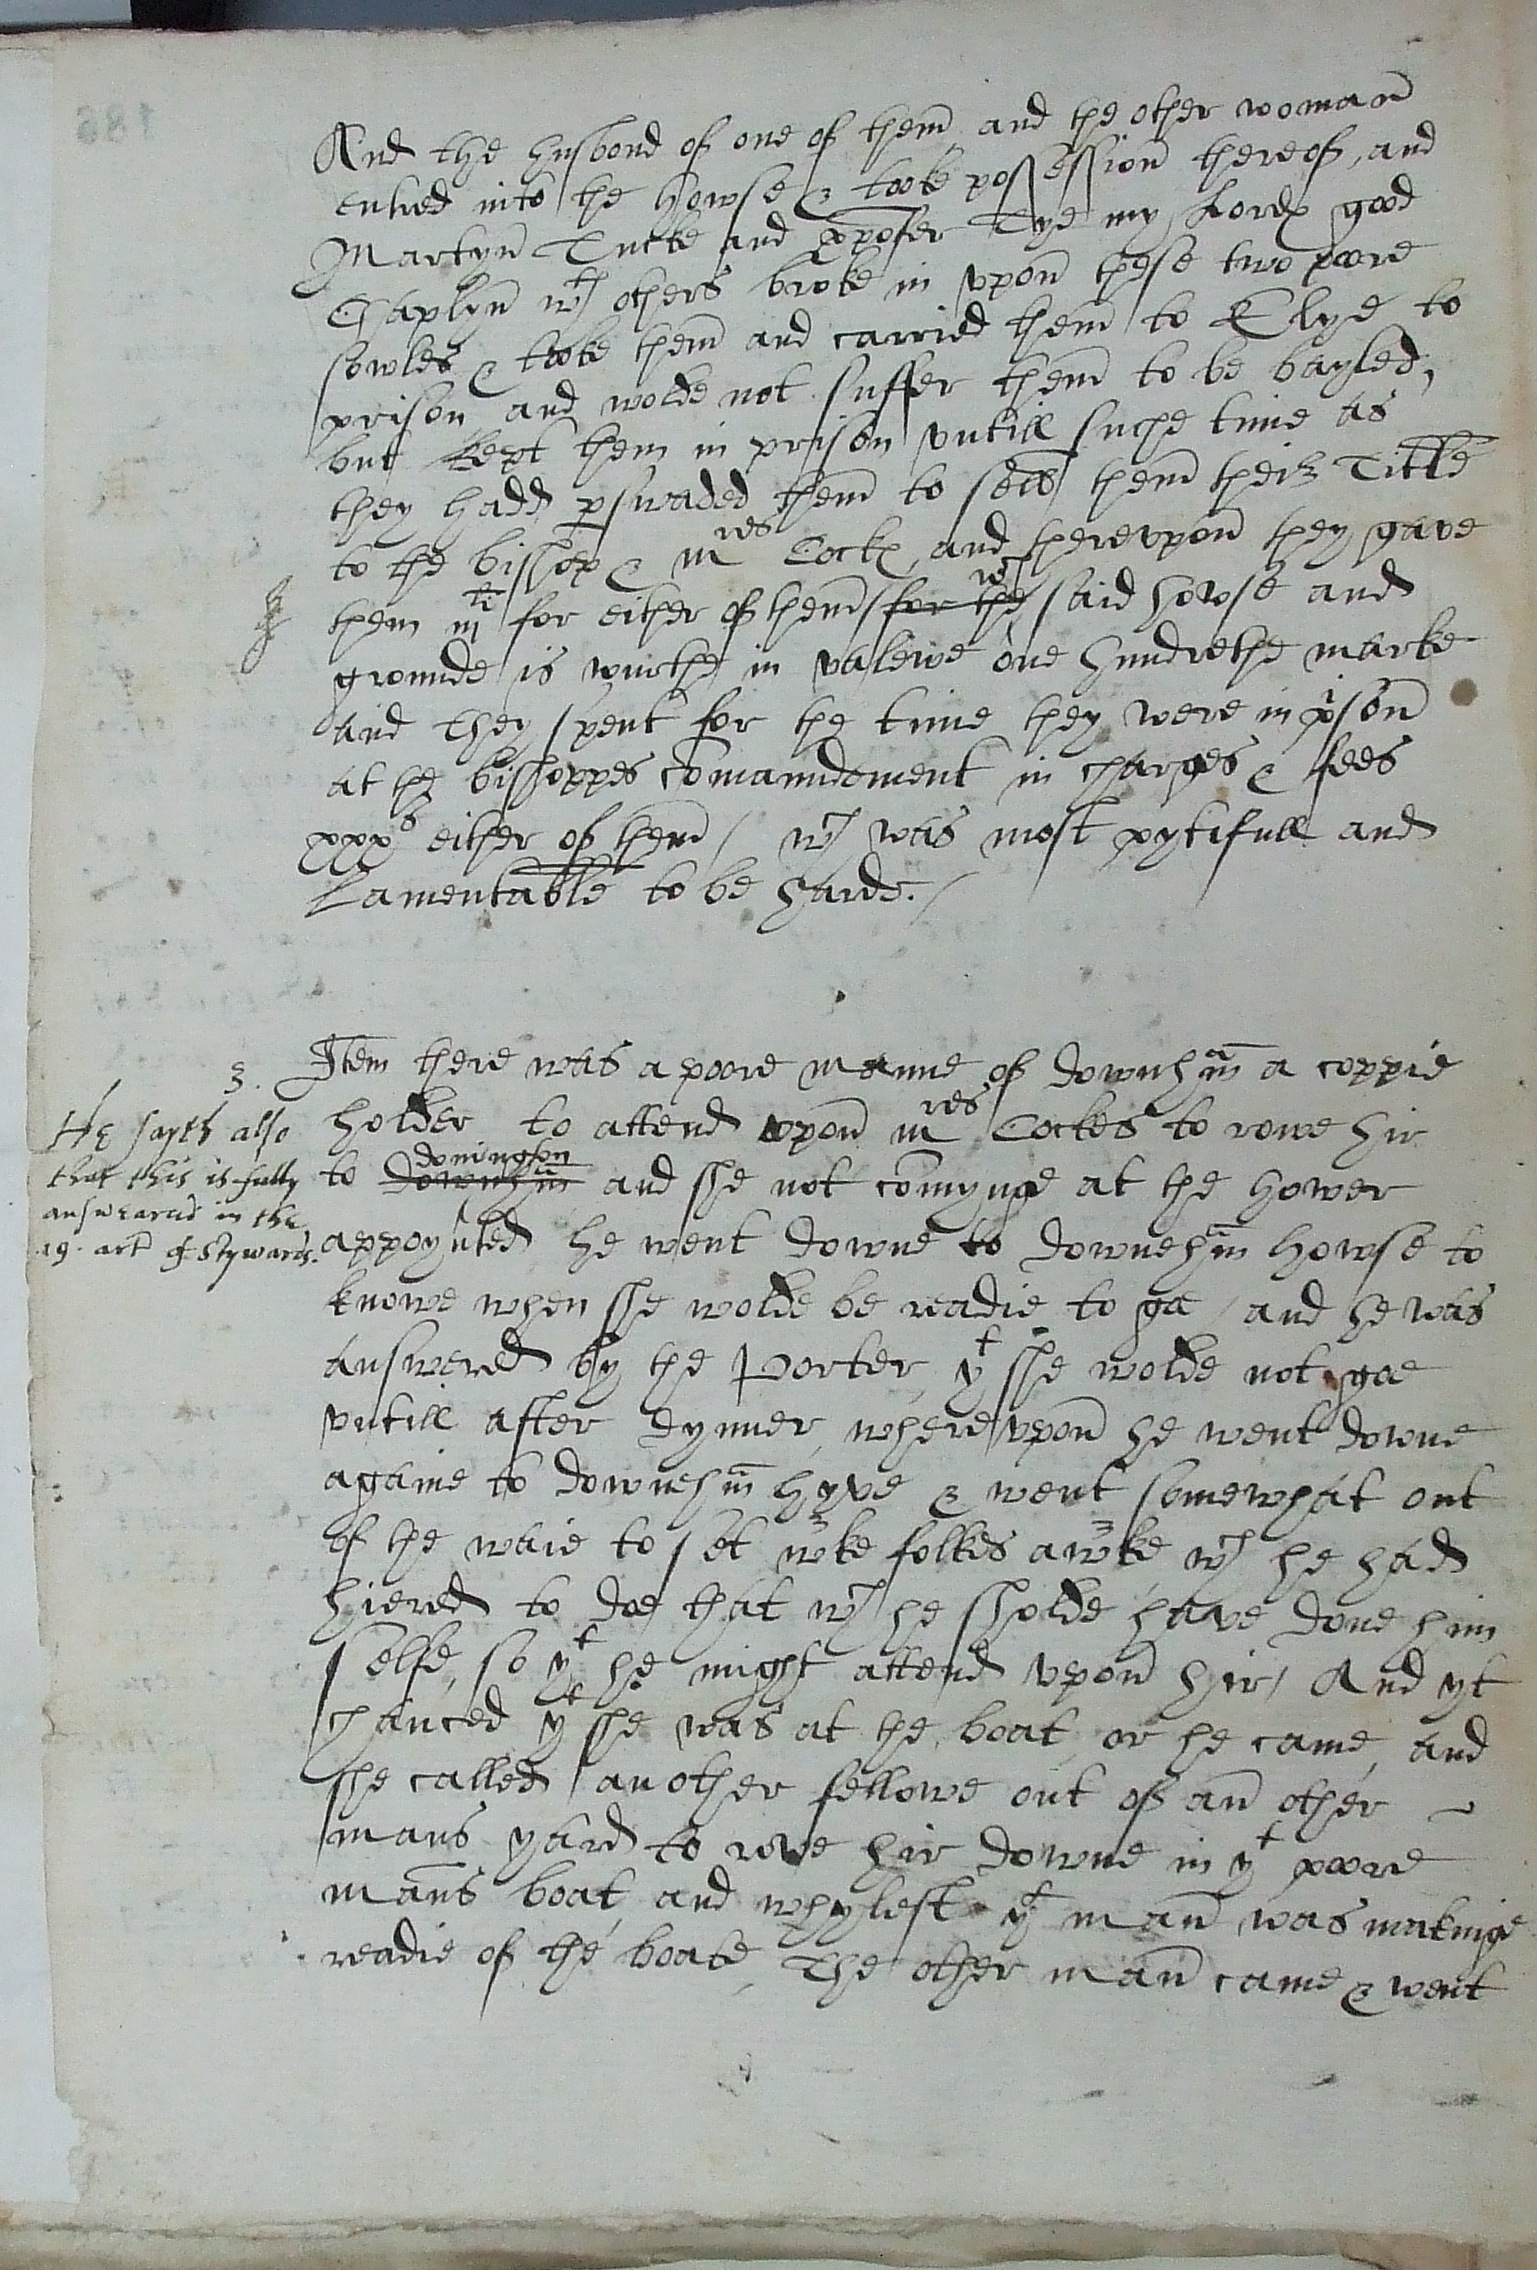 And the husbond of one of them and the other woman
entred into the howse & tooke possession thereof, and
Martyn Tucke and xpofer Tye my Lordes good
Chaplyn wth others broke in vpon these two poore
sowles & tooke them and carried them to Elye to
prison and wolde not suffer them to be bayled,
but kept them in prison vntill suche time as
they hadd pswaded them to sell them their Title
to the bisshop & mres Cockes, and therevpon they gave
them iijli for either of them / for the wch said howse and
grounde is wurthe in valewe one hundrethe marke
and they spent for the time they were in prison
at the bisshoppes comaundement in charges & fees
xxxs either of them / wch was most pytifull and
Lamentable to be harde. /
3. Item there was a poore manne of downhm a coppie
holder to attend vpon mres Cockes to rowe hir
to downhm donington and she not comynge at the hower
appoynted he went downe to downehm howse to
knowe when she wolde be readie to goe / and he was
answered by the Porter, yt she wolde not goe
vntill after dynner, wherevpon he went downe
againe to downehm hyve & went somewhat out
of the waie to set wrke folkes awrke wch he had
hiered to doe that wch he sholde have done him
selfe, so yt he might attend vpon hir / And yt
chanced yt she was at the boat or he came, and
she called another fellowe out of an other
mans yard to rowe hir downe in yt poore
mans boat, and whylest yt man was makinge
readie of the boate, The other man came & went
He sayth also
that this is fully
answeared in the
19. art of Stywards.
186